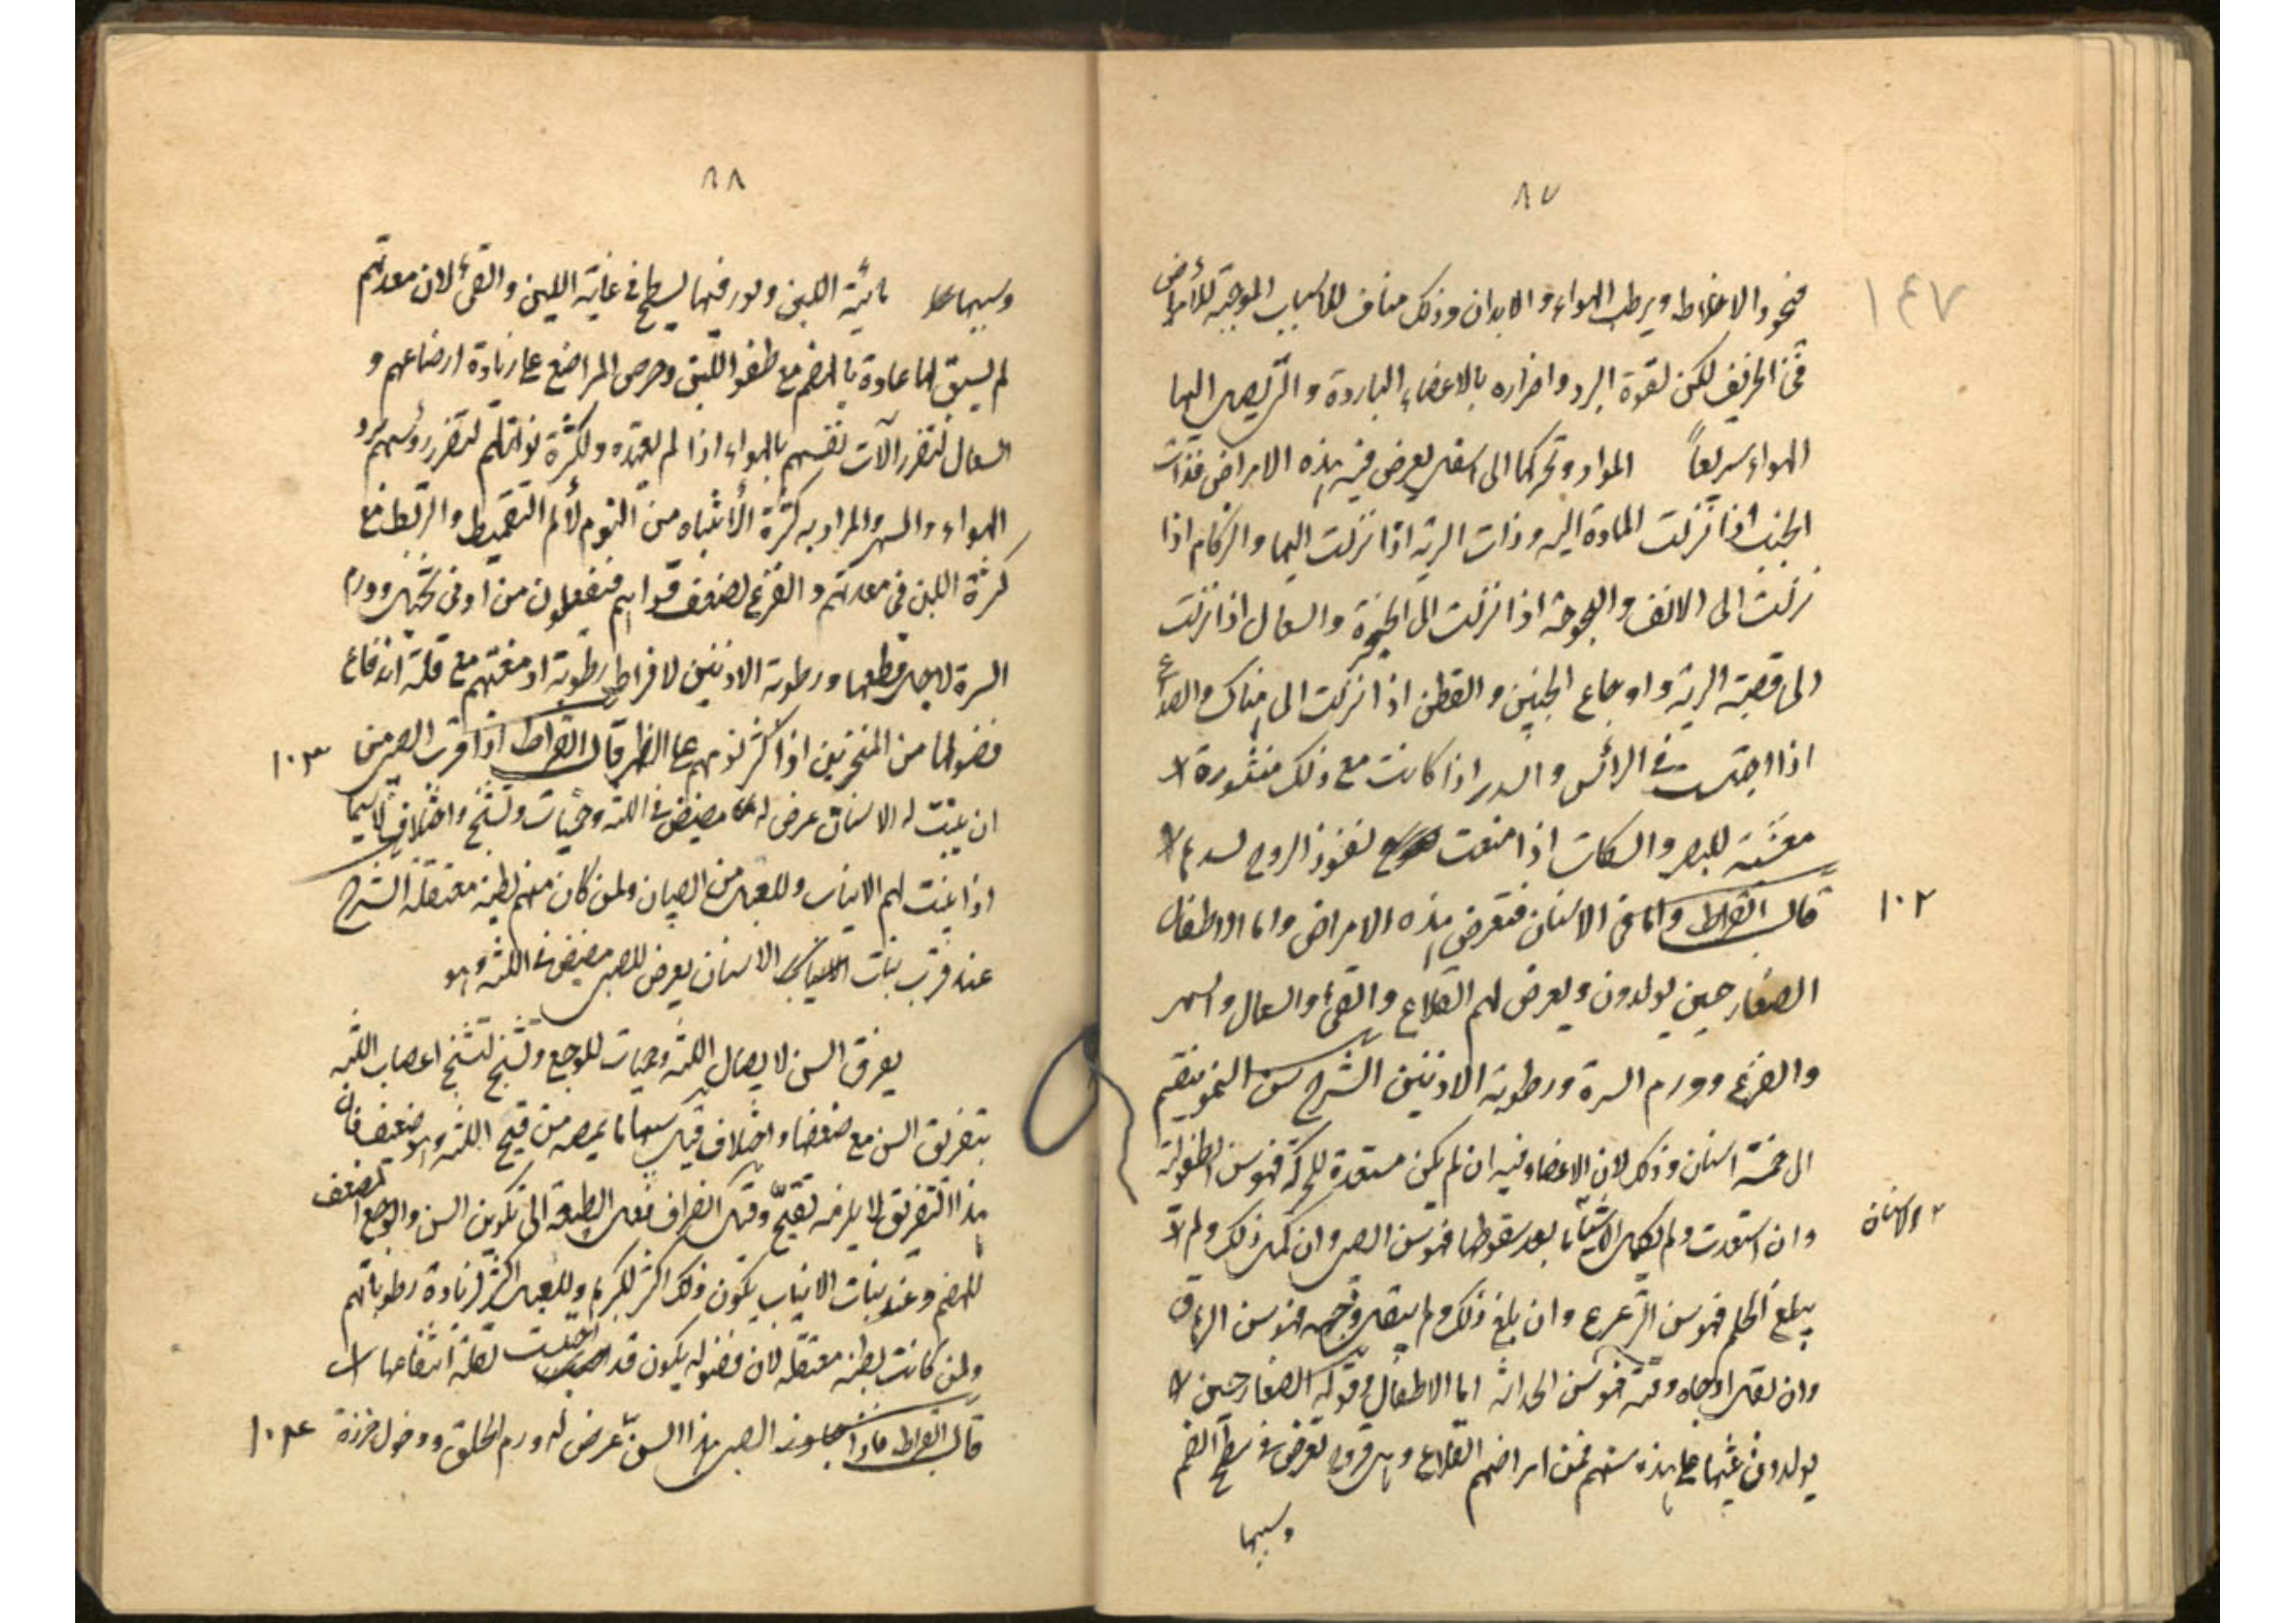 ٨٧
١٤٧
فتجود الاخلاط ويرطب الهواء والابدان وذلك مناف للاسباب الموجبة للأمراض
فى الخريف لكن لقوة البرد واضراره بالاعضاء الباردة والتى يصل اليها
الهواء سريعاً المواد وتحركها الى اسفل يعرض فيه هذه الامراض فذات
الجنب اذا نزلت المادة اليه وذات الرية اذا نزلت اليها والزكام اذا
نزلت الى الانف والبحوحة اذا نزلت الى الحنجرة والسعال اذا نزلت
الى قصبة الرية واوجاع الجنبين والقطن اذا نزلت الى هناك والصداع
اذا احتبست فى الرأس والسدر اذا كانت مع ذلك
للبصر والسكات اذا منعت نفوذ الروح
١٠٢
قال ابقراط واما فى الاسنان فتعرض هذه الامراض واما الاطفال
الصغار حين يولدون فيعرض لهم القلاع والقئ والسعال والسهر
والفزع وورم السرة ورطوبة الاذنين الشرح سن النمو ينقسم
الى خمسة اسنان وذلك لان الاعضاء فيه ان لم يكن مستعدة للحركة فهو سن الطفولة
وان استعدت ولم يكمل الاسنان بعد سقوطها فهو سن الصبى وان كمل ذلك ولم
يبلغ الحلم فهو سن الترعرع وان بلغ ذلك ولم يبقل وجهه فهو سن الرهاق
وان بقل وجهه فهو سن الحداثة اما الاطفال وقوله الصغار حين
يولدون هذه سنهم فمن امراضهم القلاع وهى قروح تعرض فى سطح الفم
وسببها
٨٨
وسببها مائية اللبن وبورقتها لسطح فى غاية اللين والقئ لان معدتهم
لم يسبق لها عادة بالهضم مع طفو اللبن وحرص المراضع على زيادة ارضاعهم و
السعال لتضرر آلات نفسهم بالهواء اذا لم يعتده ولكثرة نوازلهم لتضرر رؤسهم ببرد
الهواء والسهر والمراد به كثرة الأنتباه من النوم لألم التقميط والربط مع
كثرة اللبن فى معدتهم والفزع لضعف قواهم فينفعلون من ادنى تخيل وورم
السرة لاجل قطعها ورطوبة الاذنين لافراط رطوبة ادمغتهم مع قلة اندفاع
فضولها من المنخرين اذا كثر نومهم على الظهر قال ابقراط اذا قرب الصبى من
١٠٣
ان ينبت له الاسنان عرض له مضيض فى اللثة وحميات وتشنج واختلاف لاسيما
اذا نبتت لهم الانياب وللعبل من الصبيان ولمن كان منهم بطنه معتقلة الشرح
عند قرب نبات الاسنان يعرض للصبى مضيض فى اللثة وهو
يفرق السن لاتصال اللثة وحميات للوجع وتشنج لتشنج اعصاب اللثة
بتفريق السن مع ضعفها واختلاف قيل سببها ما يمصه من قيح اللثة وهو ضعيف فان
هذا التفريق لا يلزمه تقيح وقيل انصراف فعل الطبيعة الى تكوين السن والوجع المضعف
للهضم وعند نبات الانياب يكون ذلك اكثر لكبرها وللعبل اكثر لزيادة رطوباتهم
ولمن كانت بطنه معتقلة لان فضوله يكون قد احتبست لقلة انتفاعها
قال ابقراط فاذا تجاوز الصبى هذا السن عرض له ورم الحلق ودخول خرزة
١٠٤